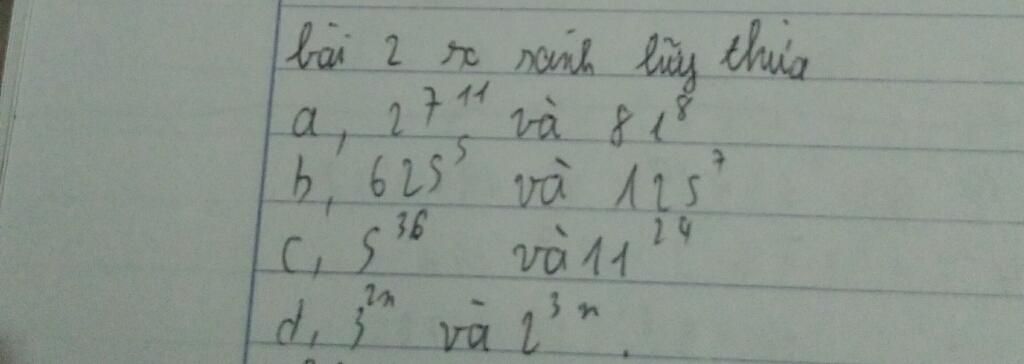 bài 2 so sánh lũy thừa
a, 27¹¹ và 81⁸
b, 625⁵ và 125⁷
c, 5³⁶ và 11²⁴
d, 3²ⁿ và 2³ⁿ.